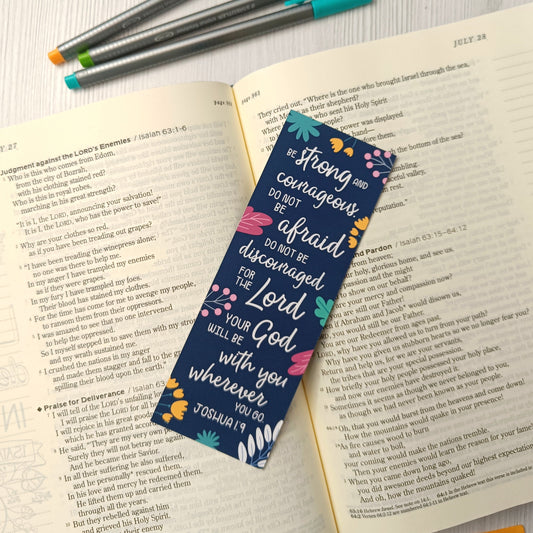 JULY 28
Y 27
Judgment against the LORD's Enemies / Isaiah 63:1-6
Who is this who comes from Edom,
from the city of Bozrah,
with his clothing stained red?
Who is this in royal robes,
marching in his great strength?
"It is I, the LORD, announcing your salvation!
It is I, the LORD, who has the power to save!"
Why are your clothes so red,
as if you have been treading out grapes?
"I have been treading the winepress alone;
no one was there to help me.
In my anger I have trampled my enemies
as if they were grapes.
In my fury I have trampled my foes.
Their blood has stained my clothes.
For the time has come for me to avenge my people,
to ransom them from their oppressors.
I was amazed to see that no one intervened
to help the oppressed.
So I myself stepped in to save them with my strong
and my wrath sustained me.
I crushed the nations in my anger
and made them stagger and fall to the
spilling their blood upon the earth."
Praise for Deliverance / Isaiah 63
I will tell of the LORD's unfailing
I will praise the LORD for all
I will rejoice in his great good
which he has granted according
He said, "They are my very own
Surely they will not betray me again
And he became their Savior.
In all their suffering he also suffered,
and he personally* rescued them.
In his love and mercy he redeemed them.
He lifted them up and carried them
through all the years.
But they rebelled against him
and grieved his Holy Spirit.
BE strong AND
courageous.
DO NOT
BE
afraid
DO NOT BE
discouraged
FOR
THE Lord
YOUR God
WILL BE
with you
wherever
YOU GO.
JOSHUA 1:9
They cried out, "Where is the one who brought Israel through the sea,
with Moses as their shepherd?
Where is the one who sent his Holy Spirit
power was displayed
hand—
before them,
the bottom of the sea?
reputation."
and Pardon / Isaiah 63:15–64:12
from heaven;
holy, glorious home, and see us.
passion and the might
to show on our behalf?
mercy and compassion now?
are still our Father!
if Abraham and Jacob* would disown us,
you would still be our Father.
You are our Redeemer from ages past.
LORD, why have you allowed us to turn from your path?
Why have you given us stubborn hearts so we no longer fear you?
Return and help us, for we are your servants,
the tribes that are your special possession.
How briefly your holy people possessed your holy place,
and now our enemies have destroyed it.
Sometimes it seems as though we never belonged to you,
as though we had never been known as your people.
Oh, that you would burst from the heavens and come down!
How the mountains would quake in your presence!
As fire causes wood to burn
and water to boil,
your coming would make the nations tremble.
Then your enemies would learn the reason for your fame
When you came down long ago,
you did awesome deeds beyond our highest expectations
And oh, how the mountains quaked!